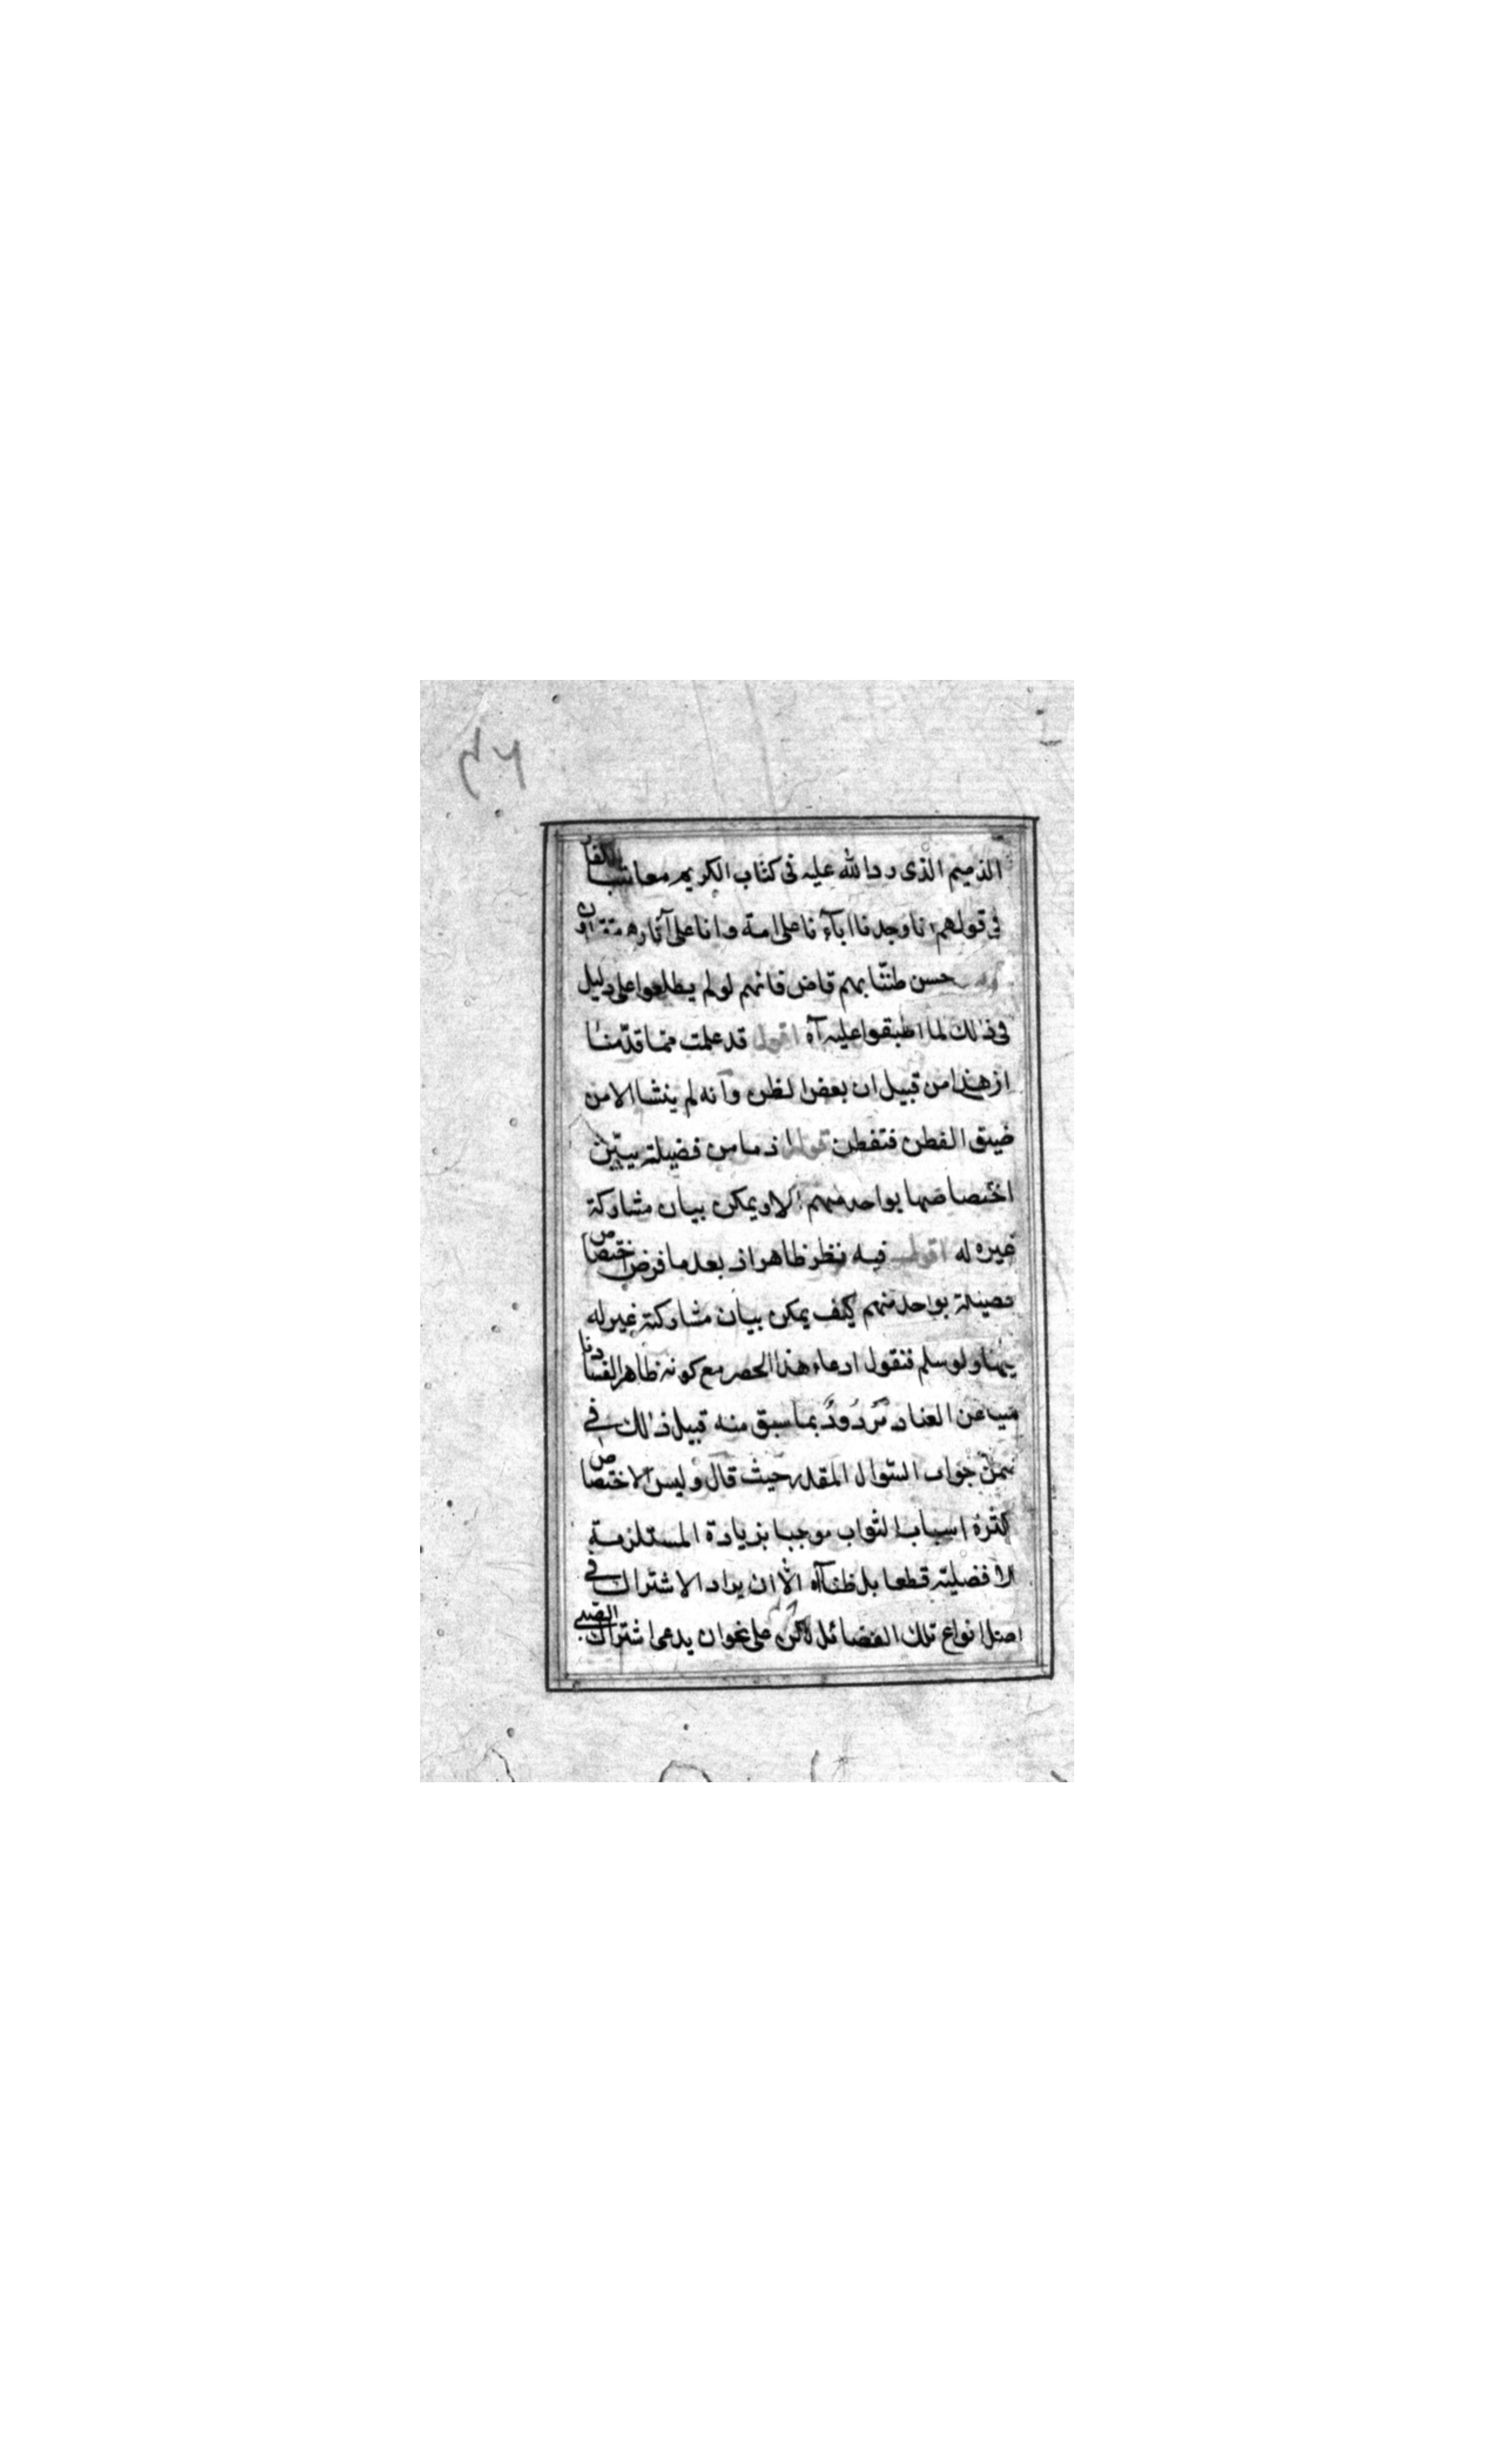 الذميم الذى رد الله عليه فى كتاب الكريم معاتبا للكفار
فى قولهم انا وجدنا اباءنا على امة وانا على آثارهم مقتدون
حسن ظننا بهم قاض فانهم لو لم يطلعوا على دليل
فى ذلك لما اطبقوا عليه آه اقول قد علمت مما قدمنا
ان هذا من قبيل ان بعض الظن وانه لم ينشا الا من
ضيق الفطن فتفطن قوله اذ ما من فضيلة يبين
اختصاصها بواحد منهم الا ويمكن بيان مشاركة
غيره له اقول فيه نظر ظاهر اذ بعد ما فرض اختصاص
فضيلة بواحد منهم كيف يمكن بيان مشاركة غير له
فيها ولو سلم فنقول ادعاء هذا الحصر مع كونه ظاهر الفساد نا
شيا عن العناد مَردودٌ بما سبق منه قبيل ذلك فى
ضمن جواب السؤال المقدر حيث قال وليس الاختصاص
كثرة اسباب الثواب موجبا بزيادة المستلزمة
الافضلية قطعا بل ظنا آه الا ان يراد الاشتراك فى
اصل انواع تلك الفضائل لكن على نحو ان يدعى اشتراك الصبى